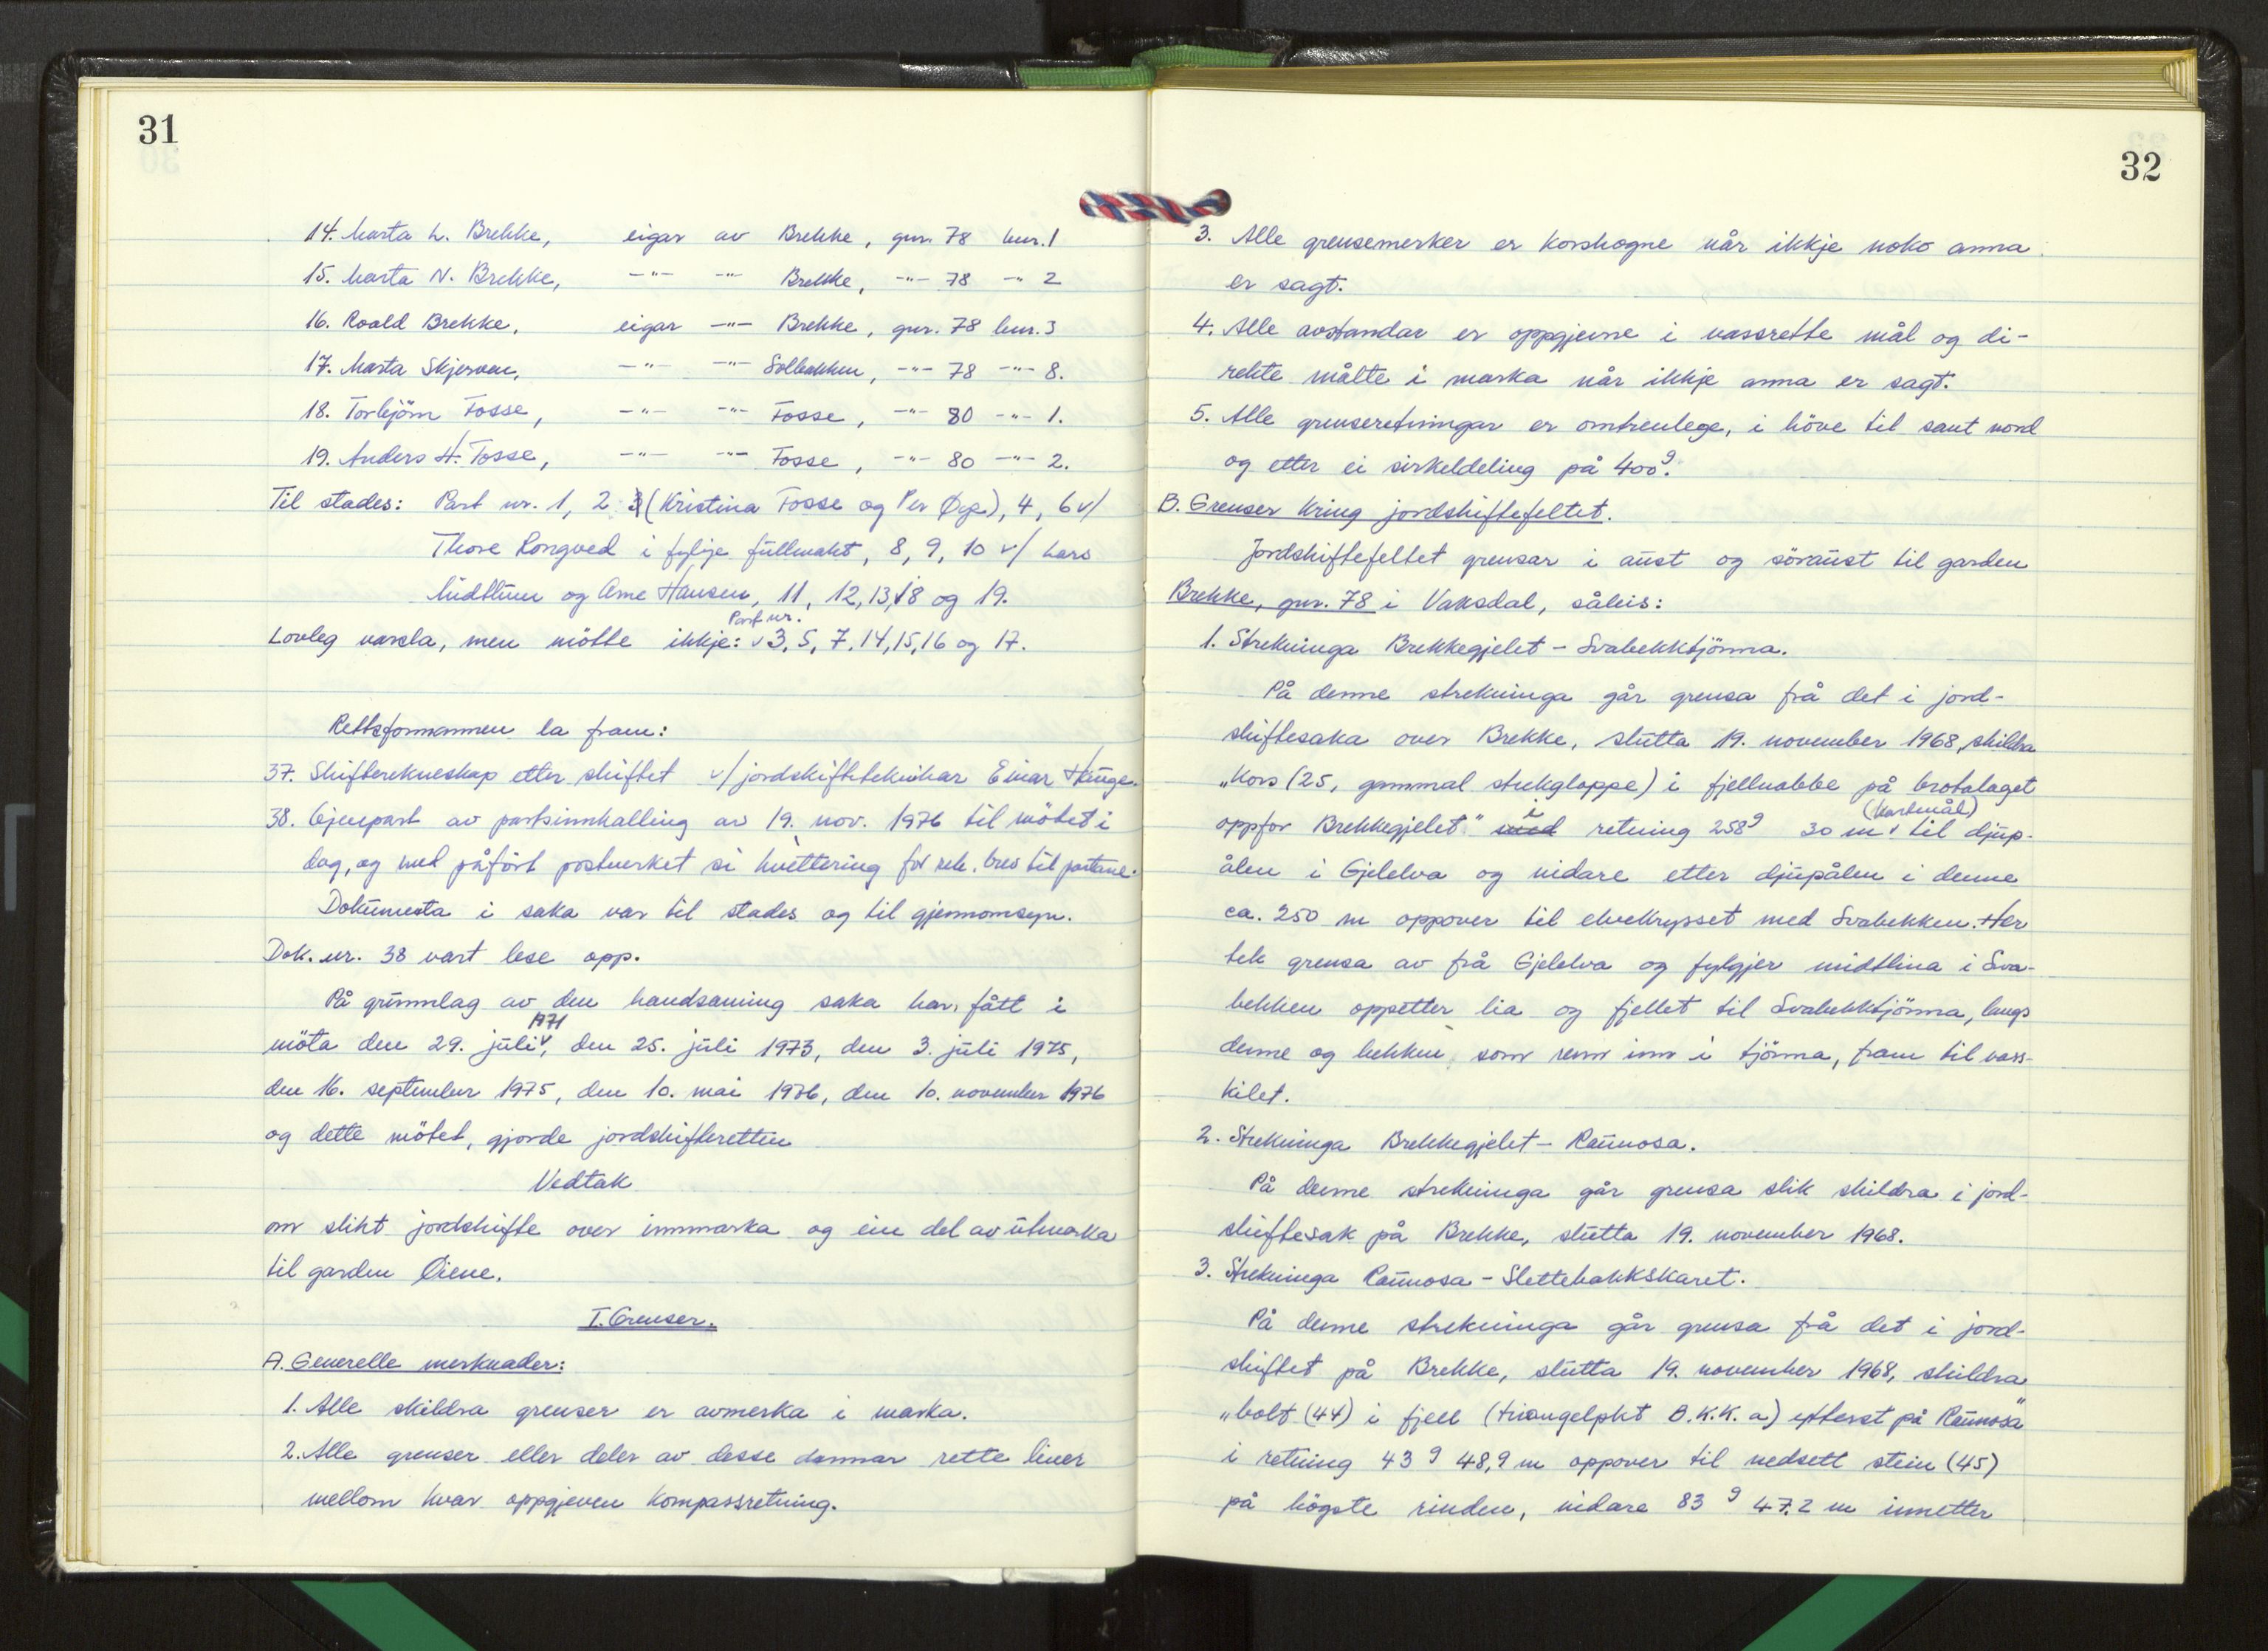 31
14. Marta L. Brekke, eigar av Brekke, gnr. 78 bnr. 1
15. Marta N. Brekke, -"- -"- Brekke, -"- 78 -"- 2
16. Roald Brekke, eigar -"- Brekke, gnr. 78 bnr. 3
17. Marta Skjerven, -"- -"- Solbakken, -"- 78 -"- 8.
18. Torbjörn Fosse, -"- -"- Fosse, -"- 80 -"- 1.
19. Anders H. Fosse, -"- -"- Fosse, -"- 80 -"- 2.
Til stades: Part nr. 1, 2 3 (Kristina Fosse og Per Øye), 4, 6 v/
Thore Rongved i fylgje fullmakt, 8, 9, 10 v/ Lars
Midttun og Arne Hansen, 11, 12, 13, 18 og 19.
Part nr.
Lovleg varsla, men mötte ikkje: 3, 5, 7, 14, 15, 16 og 17.
Rettsformannen la fram:
37. Skifterekneskap etter skiftet v/ jordskifteteknikar Einar Hauge.
38. Gjenpart av partsinnkalling av 19. nov. 1976 til mötet i
dag, og med påfört postverket si kvittering for rek. brev til partane.
Dokumenta i saka var til stades og til gjennomsyn.
Dok. nr. 38 vart lese opp.
På grunnlag av den handsaming saka har fått i
1971
möta den 29. juli, den 25. juli 1973, den 3. juli 1975,
den 16. september 1975, den 10. mai 1976, den 10. november 1976
og dette mötet, gjorde jordskifteretten
Vedtak
om slikt jordskifte over innmarka og ein del av utmarka
til garden Øiene.
I. Grenser.
A. Generelle merknader:
1. Alle skildra grenser er avmerka i marka.
2. Alle grenser eller deler av desse dannar rette liner
mellom kvar oppgjeven kompassretning.
32
3. Alle grensemerker er krosshogne når ikkje noko anna
er sagt.
4. Alle avstandar er oppgjevne i vassrette mål og di-
rekte målte i marka når ikkje anna er sagt.
5. Alle grenseretningar er omtrenlege, i höve til sant nord
og etter ei sirkeldeling på 400g.
B. Grenser kring jordskiftefeltet.
Jordskiftefeltet grensar i aust og söraust til garden
Brekke, gnr. 78 i Vaksdal, såleis:
1. Strekninga Brekkegjelet - Svabekktjönna.
På denne strekninga går grensa frå det i jord-
skiftesaka over Brekke, slutta 19. november 1968, skildra
"Kors (25, gammal stukgloppe) i fjellnabbe på brotalaget
i (kartmål)
oppfor Brekkegjelet" med retning 258g 30 m til djup-
ålen i Gjelelva og vidare etter djupålen i denne
ca. 250 m oppover til elvekrysset med Svabekken. Her
tek grensa av frå Gjelelva og fylgjer midtlina i Sva-
bekken oppetter lia og fjellet til Svabekktjönna, langs
denne og bekken som renn inn i tjönna, fram til vass-
kilet.
2. Strekninga Brekkegjelet - Raunosa.
På denne strekninga går grensa slik skildra i jord-
skiftesak på Brekke, slutta 19. november 1968.
3. Strekninga Raunosa - Slettebakkskaret.
På denne strekninga går grensa frå det i jord-
skiftet på Brekke, slutta 19. november 1968, skildra
"bolt (44) i fjell (triangelpkt B.K.K. a) ytterst på Raunosa"
i retning 43g 48,9 m oppover til nedsett stein (45)
på högste rinden, vidare 83g 47.2 m innetter